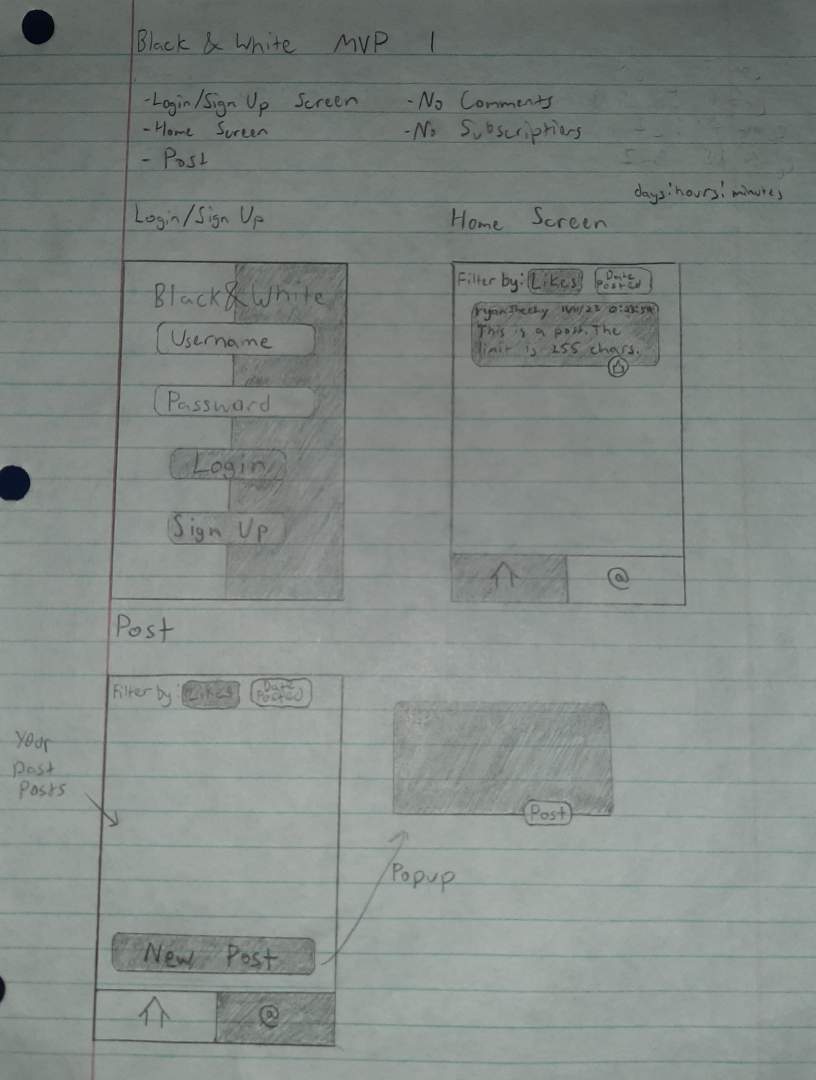 Black & White MVP 1
-Login/Sign Up Screen
-Home Screen
- Post
-No Comments
-No Subscriptions
days:hours:minutes
Login/Sign Up
Black&White
Username
Password
Login
Sign Up
Home Screen
Filter by: Likes Date Posted
This is a post. The
limit is 255 chars.
@
Post
Filter by: Likes Date Posted
Your
past
Posts
New Post
@
Popup
Post